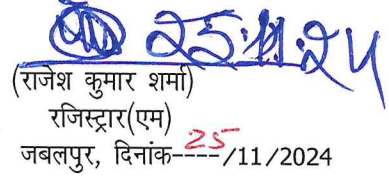 25.11.24
(राजेश कुमार शर्मा)
रजिस्ट्रार(एम)
जबलपुर, दिनांक-25-/11/2024